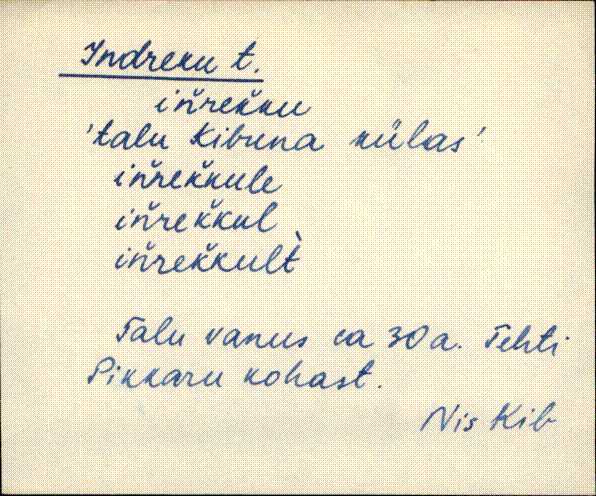 Indreku t.
iňrekku
'talu Kibuna külas'
iňrekkule
iňrekkul
iňrekkult̀
Talu vanus ca 30 a. Tehti
Pikkaru kohast.
Nis Kib